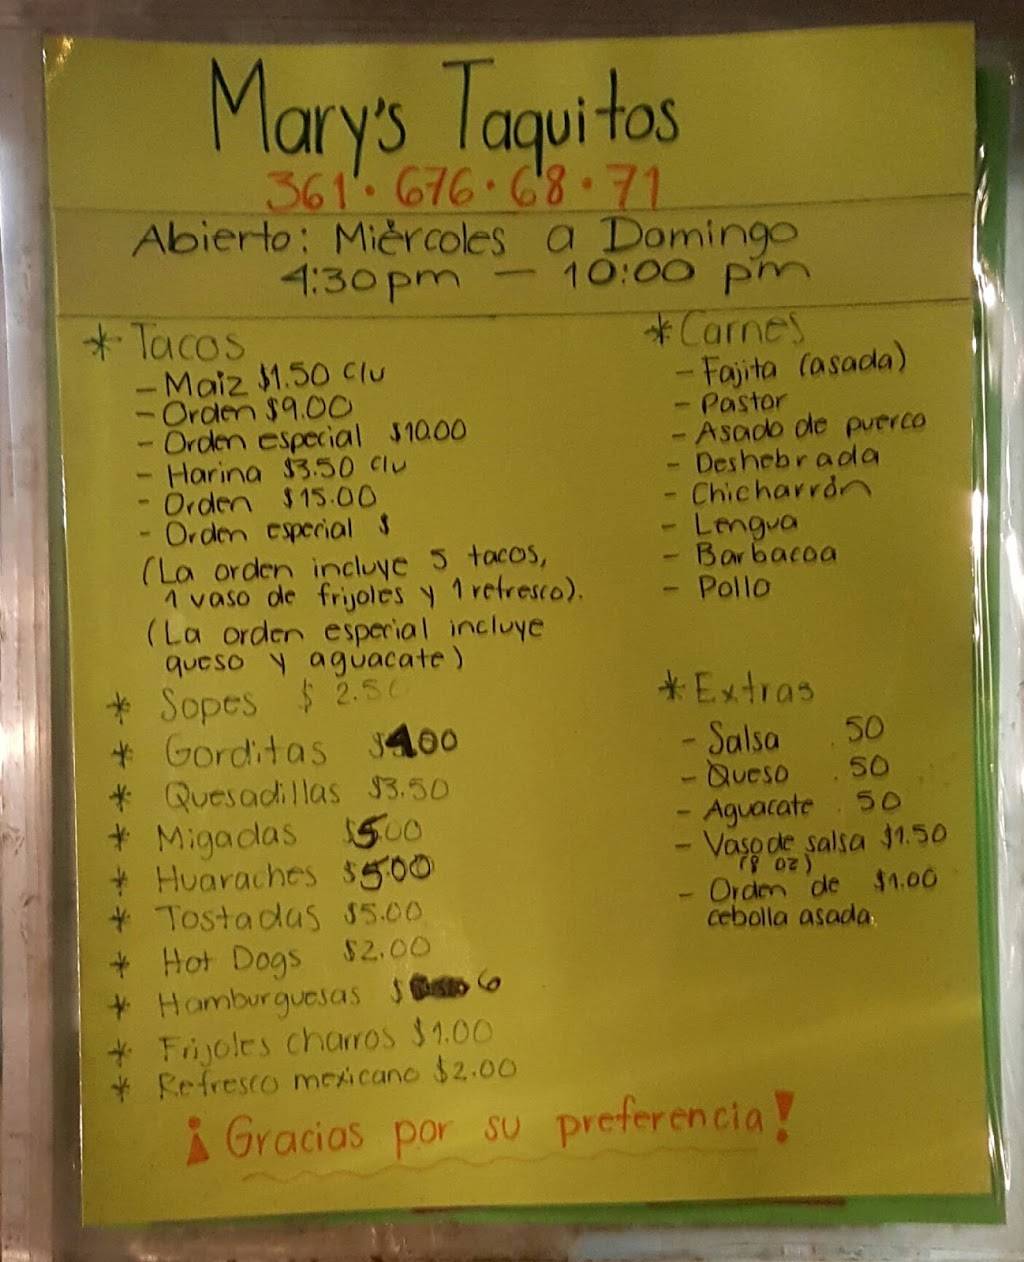 Mary's Taquitos
361·676·68·71
Abierto: Miércoles a Domingo
4:30pm — 10:00 pm
* Tacos
- Maiz $1.50 c/u
- Orden $9.00
- Orden especial $10.00
- Harina $3.50 c/u
- Orden $15.00
- Orden especial $
(La orden incluye 5 tacos,
1 vaso de frijoles y 1 refresco).
(La orden especial incluye
queso y aguacate)
* Sopes $ 2.50
* Gorditas $4.00
* Quesadillas $3.50
* Migadas $5.00
* Huaraches $5.00
* Tostadas $5.00
* Hot Dogs $2.00
* Hamburguesas $ 6
* Frijoles charros $1.00
* Refresco mexicano $2.00
* Carnes
- Fajita (asada)
- Pastor
- Asado de puerco
- Deshebrada
- Chicharrón
- Lengua
- Barbacoa
- Pollo
* Extras
- Salsa .50
- Queso .50
- Aguacate .50
- Vaso de salsa $1.50
(8 oz)
- Orden de $1.00
cebolla asada.
¡Gracias por su preferencia!